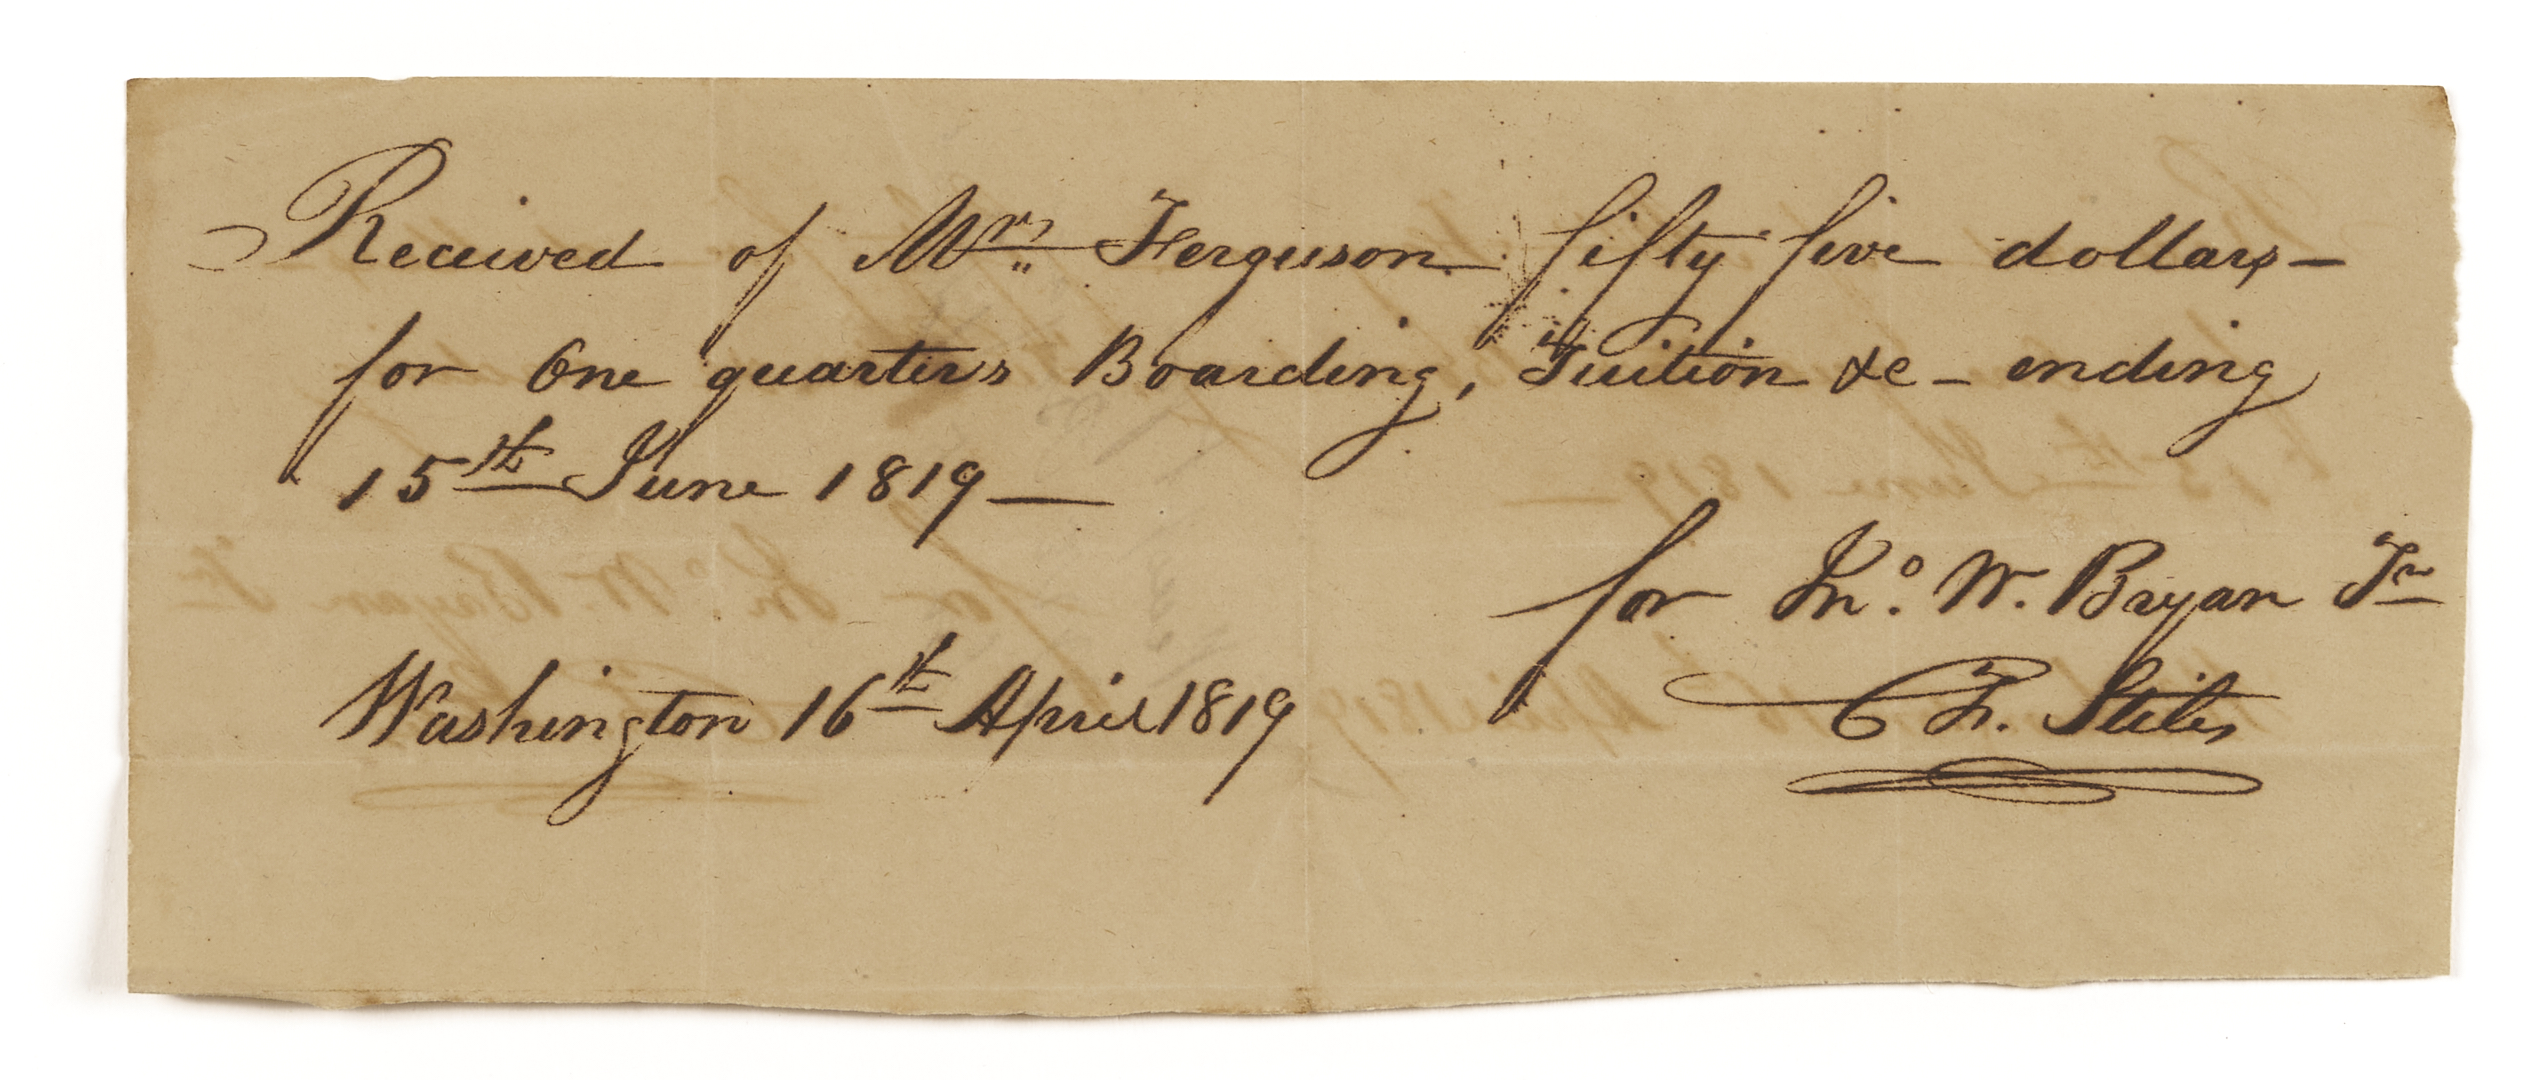 Received of Mrs. Ferguson fifty five dollars —
for One quarters Boarding, Tuition &c — ending
15th June 1819 —
for Jno. W. Bryan Jr
Washington 16th April 1819
F. Stiles